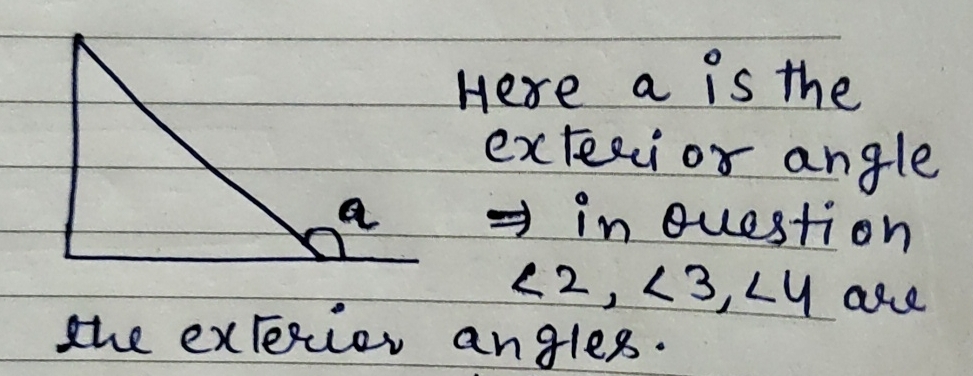 Here a is the
exterior angle
a
⇒ in question
<2, <3, <4 are
the exterior angles.